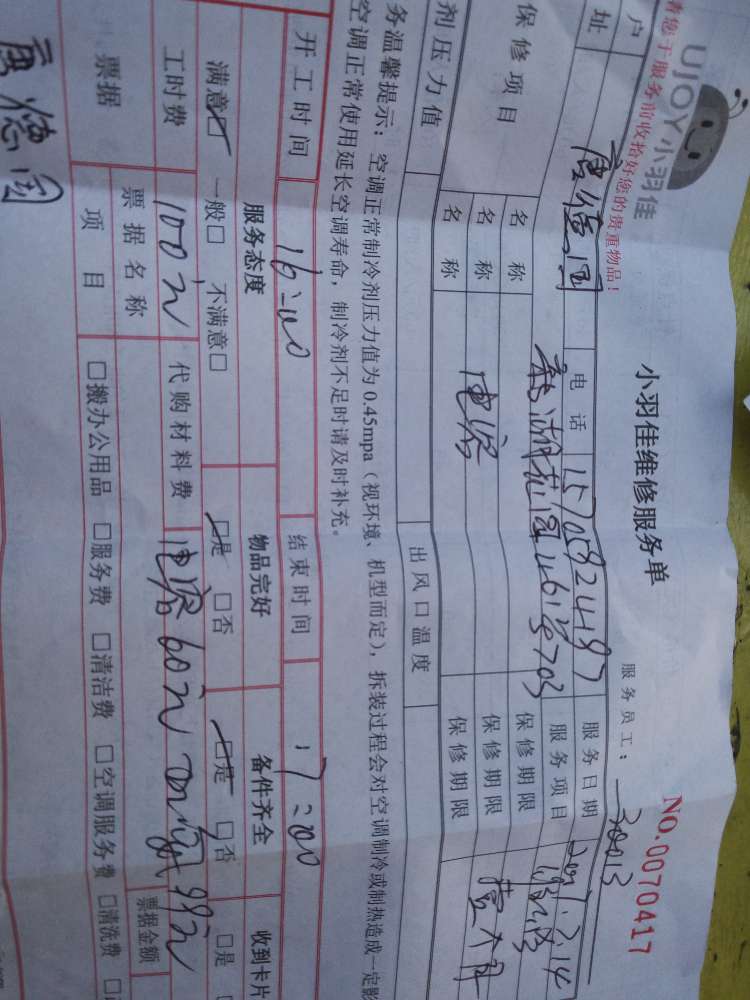 UJOY小羽佳
小羽佳维修服务单
NO.0070417
服务员工： 30013
者您于服务前收拾好您的贵重物品！
户 唐德国 电话 15705924187 服务日期 2017.2.14
址 新湖花园4616号703 服务项目
保修项目 名称 保修期限
名称 电容 保修期限 壹个月
名称 保修期限
剂压力值 出风口温度
务温馨提示：空调正常制冷剂压力值为0.45mpa（视环境、机型而定），拆装过程会对空调制冷或制热造成一定影
空调正常使用延长空调寿命，制冷剂不足时请及时补充。
开工时间 16:00 结束时间 17:00
服务态度 物品完好 备件齐全 收到卡片
满意☑ 一般□ 不满意□ ☑是 □否 ☑是 □否 □是
工时费 100元 代购材料费 电容60元
票据 票据名称 票据金额
项目 □搬办公用品 □服务费 □清洁费 □空调服务费 □清洗费
唐德国